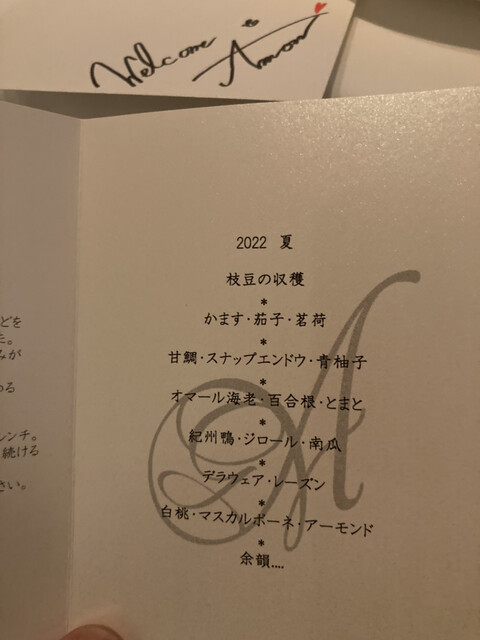 Welcome
2022 夏
枝豆の収穫
*
かます・茄子・茗荷
*
甘鯛・スナップエンドウ・青柚子
*
オマール海老・百合根・とまと
*
紀州鴨・ジロール・南瓜
*
デラウェア・レーズン
*
白桃・マスカルポーネ・アーモンド
*
余韻....
A
どを
た。
みが
める
レンチ。
続ける
さい。